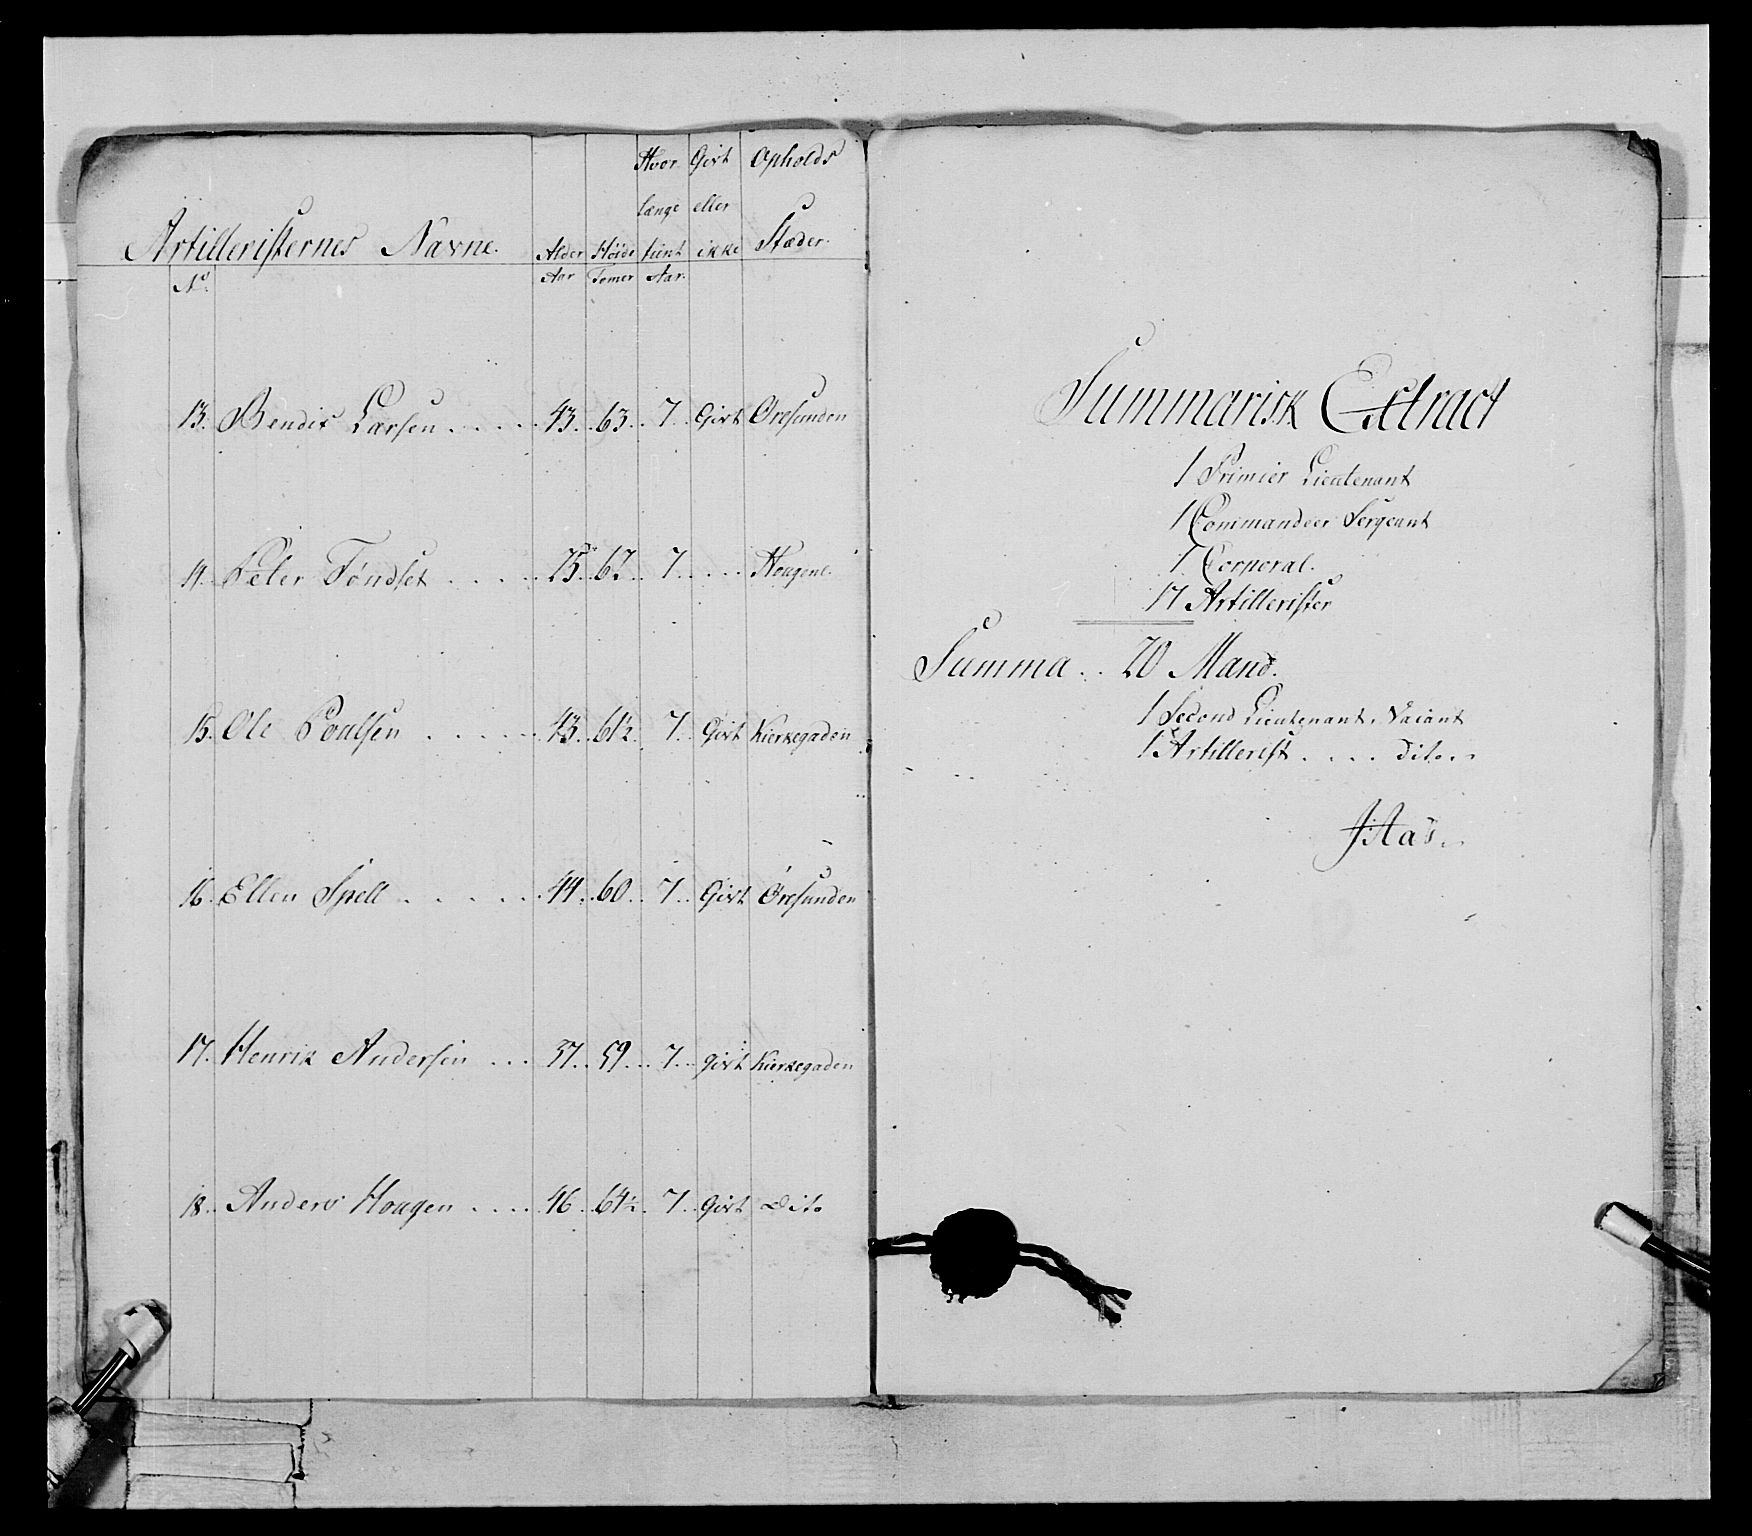 Hvor Givt Opholds
længe eller
Artilleristernes Navne. Alder Høide tient ikke Stæder.
No. Aar Tomer Aar.
13. Bendix Larsen . . . . . 43. . 63. . 7. . Givt Øresunden
14. Peter Tøndset . . . . . 25. . 67. . 7. . . . . Hougene.
15. Ole Poalsen . . . . . 43. . 61½. . 7. . Givt Kierkegaden
16. Ellen Spell . . . . . 44. . 60. . 7. . Givt Øresunden
17. Henrik Andersen . . . 37. . 59. . . 7. . . givt Kierkegaden
18. Anders Hougen . . . . 46. . 64½. . 7. . Givt Dito
Summarisk Extract
1 Primier Lieutenant
1 Commandeer Sergeant
1 Corporal.
17 Artillerister
Summa . . 20 Mand.
1 Second Lieutenant. Vacant
1 Artillerist . . . . dito. "